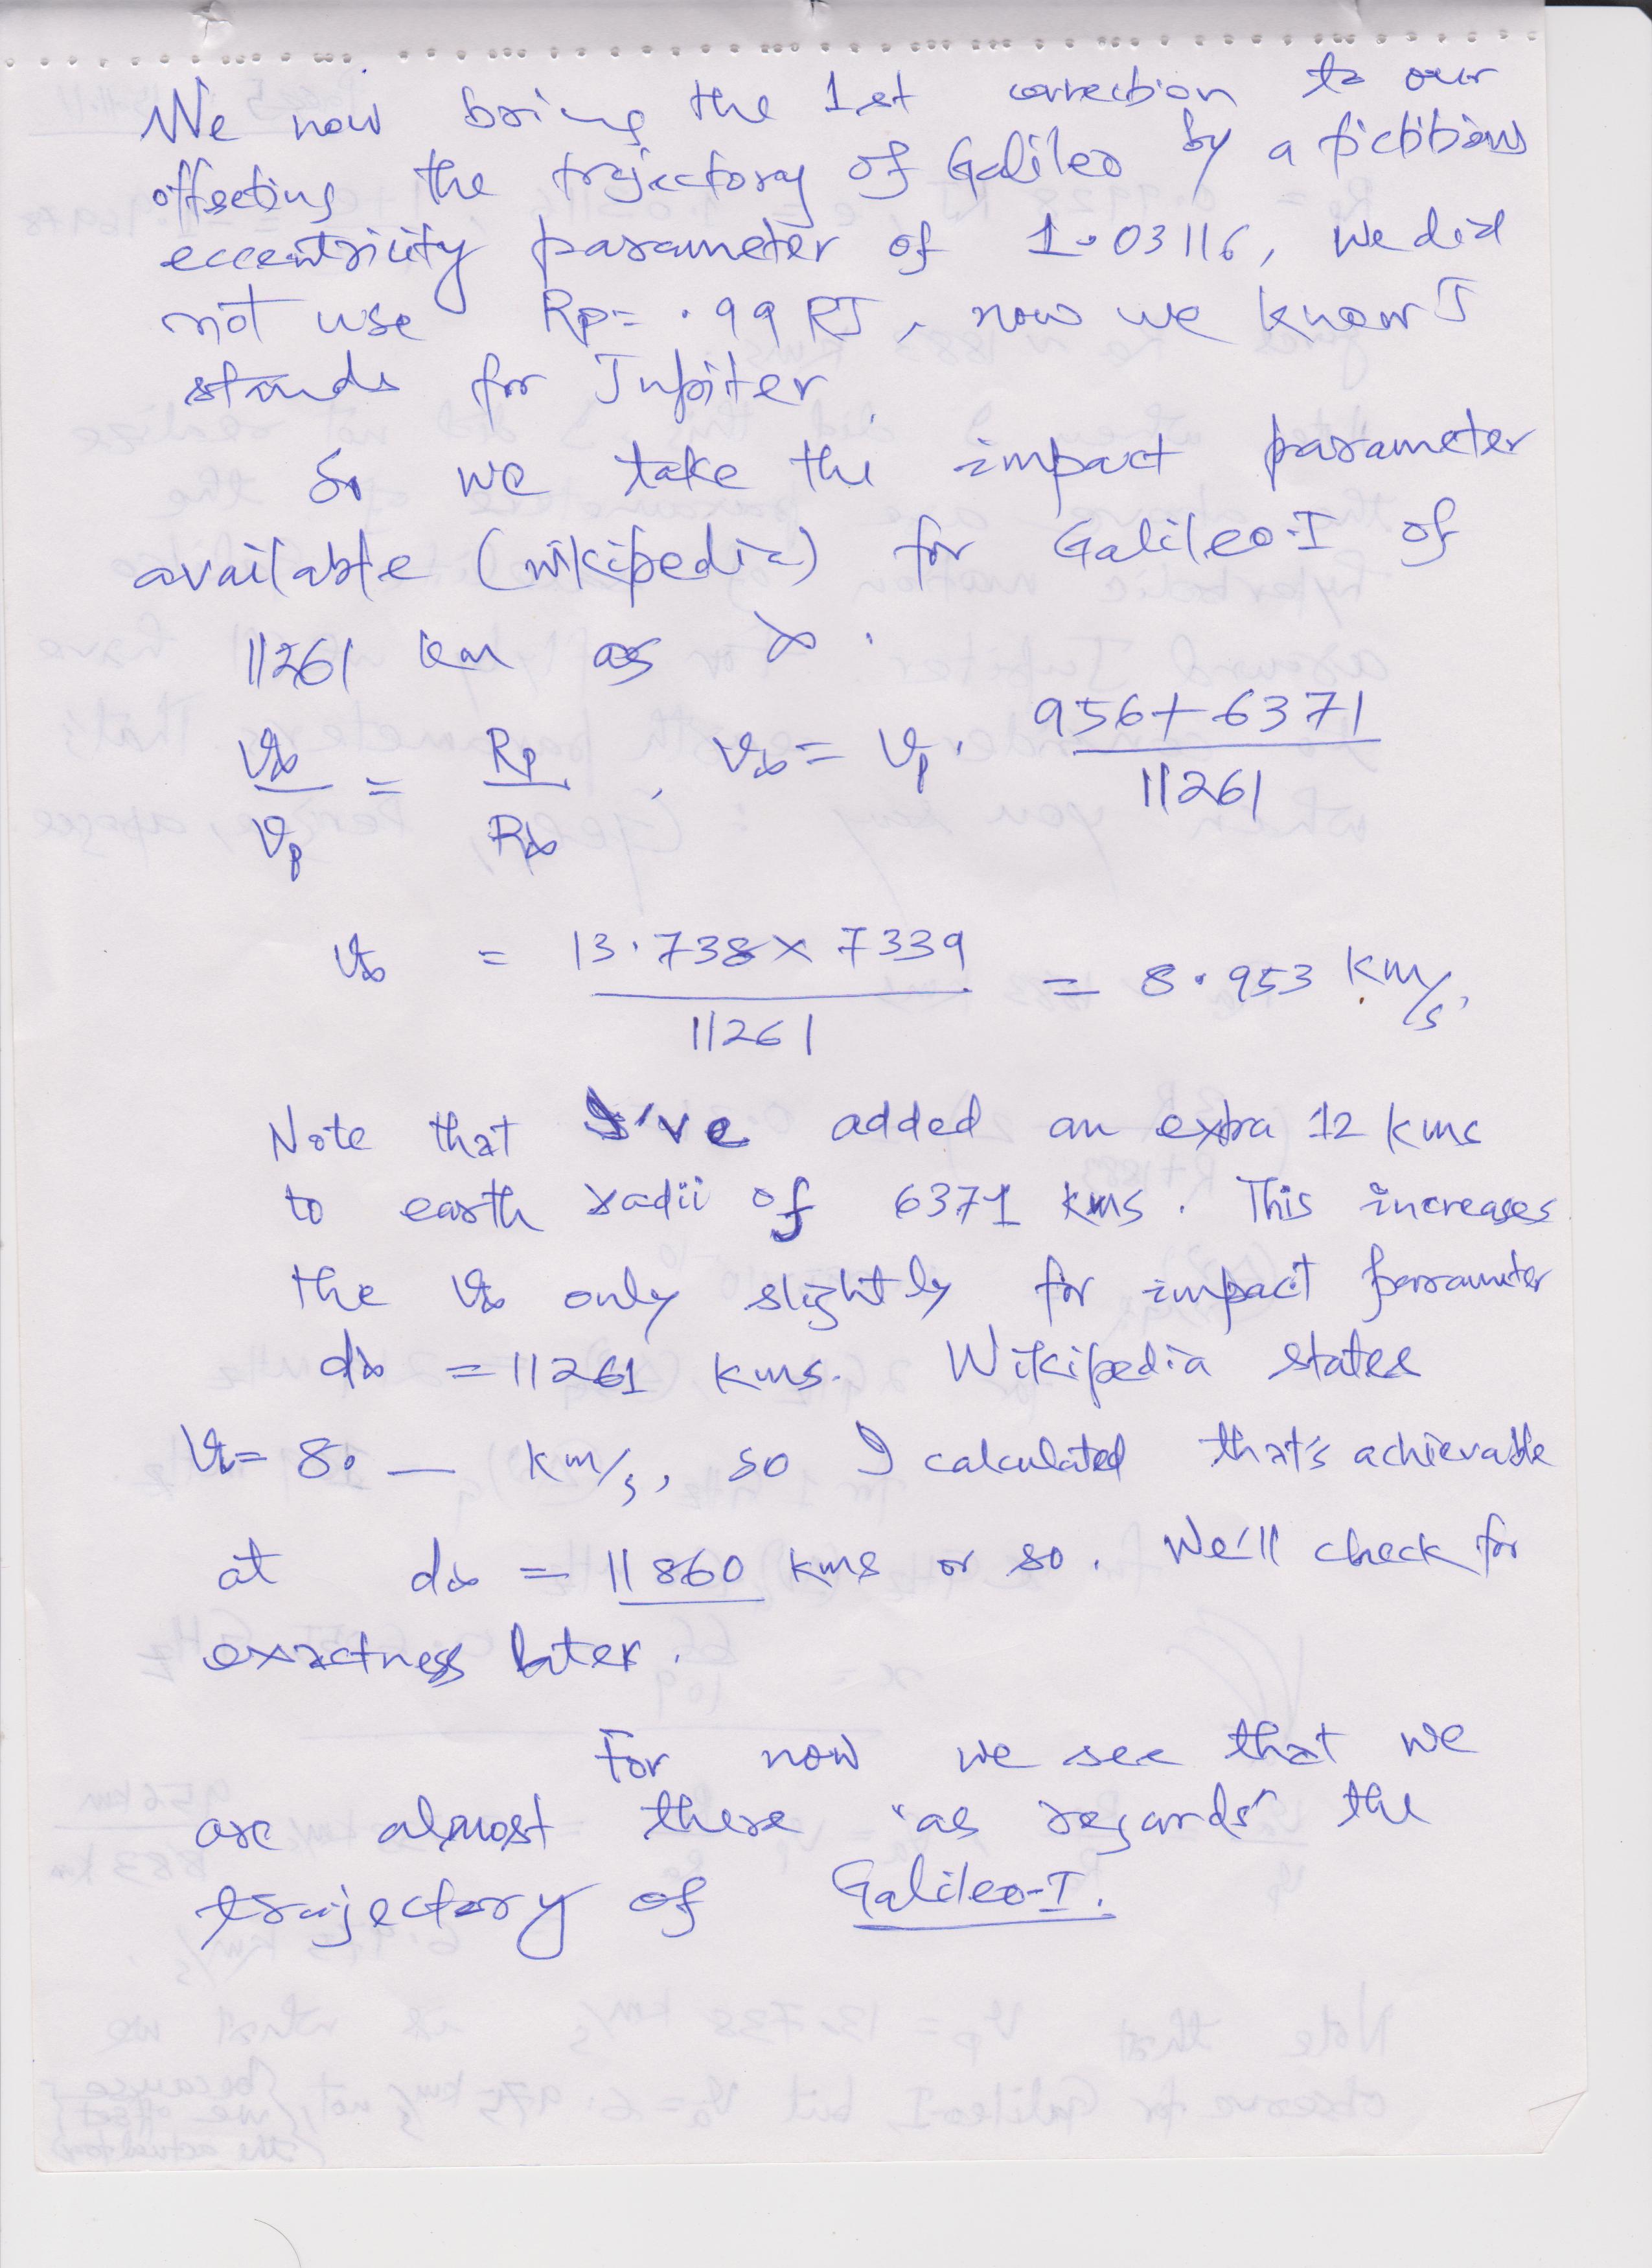 We now bring the 1st correction to our
offsetting the trajectory of Galileo by a fictitious
eccentricity parameter of 1.03116, we did
not use Rp= .99 RJ, now we know J
stands for Jupiter.
So we take the impact parameter
available (wikipedia) for Galileo-I of
11261 km as ∞.
V∞/Vp = Rp/R∞, V∞ = Vp. 956+6371/11261
V∞ = 13.738 × 7339/11261 = 8.953 km/s,
Note that I've added an extra 12 kms
to earth radii of 6371 kms. This increases
the V∞ only slightly for impact parameter
d∞ = 11261 kms. Wikipedia states
V= 8. — km/s, so I calculated that's achievable
at d∞ = 11860 kms or so. We'll check for
exactness later.
For now we see that we
are almost there "as regards" the
trajectory of Galileo-I.